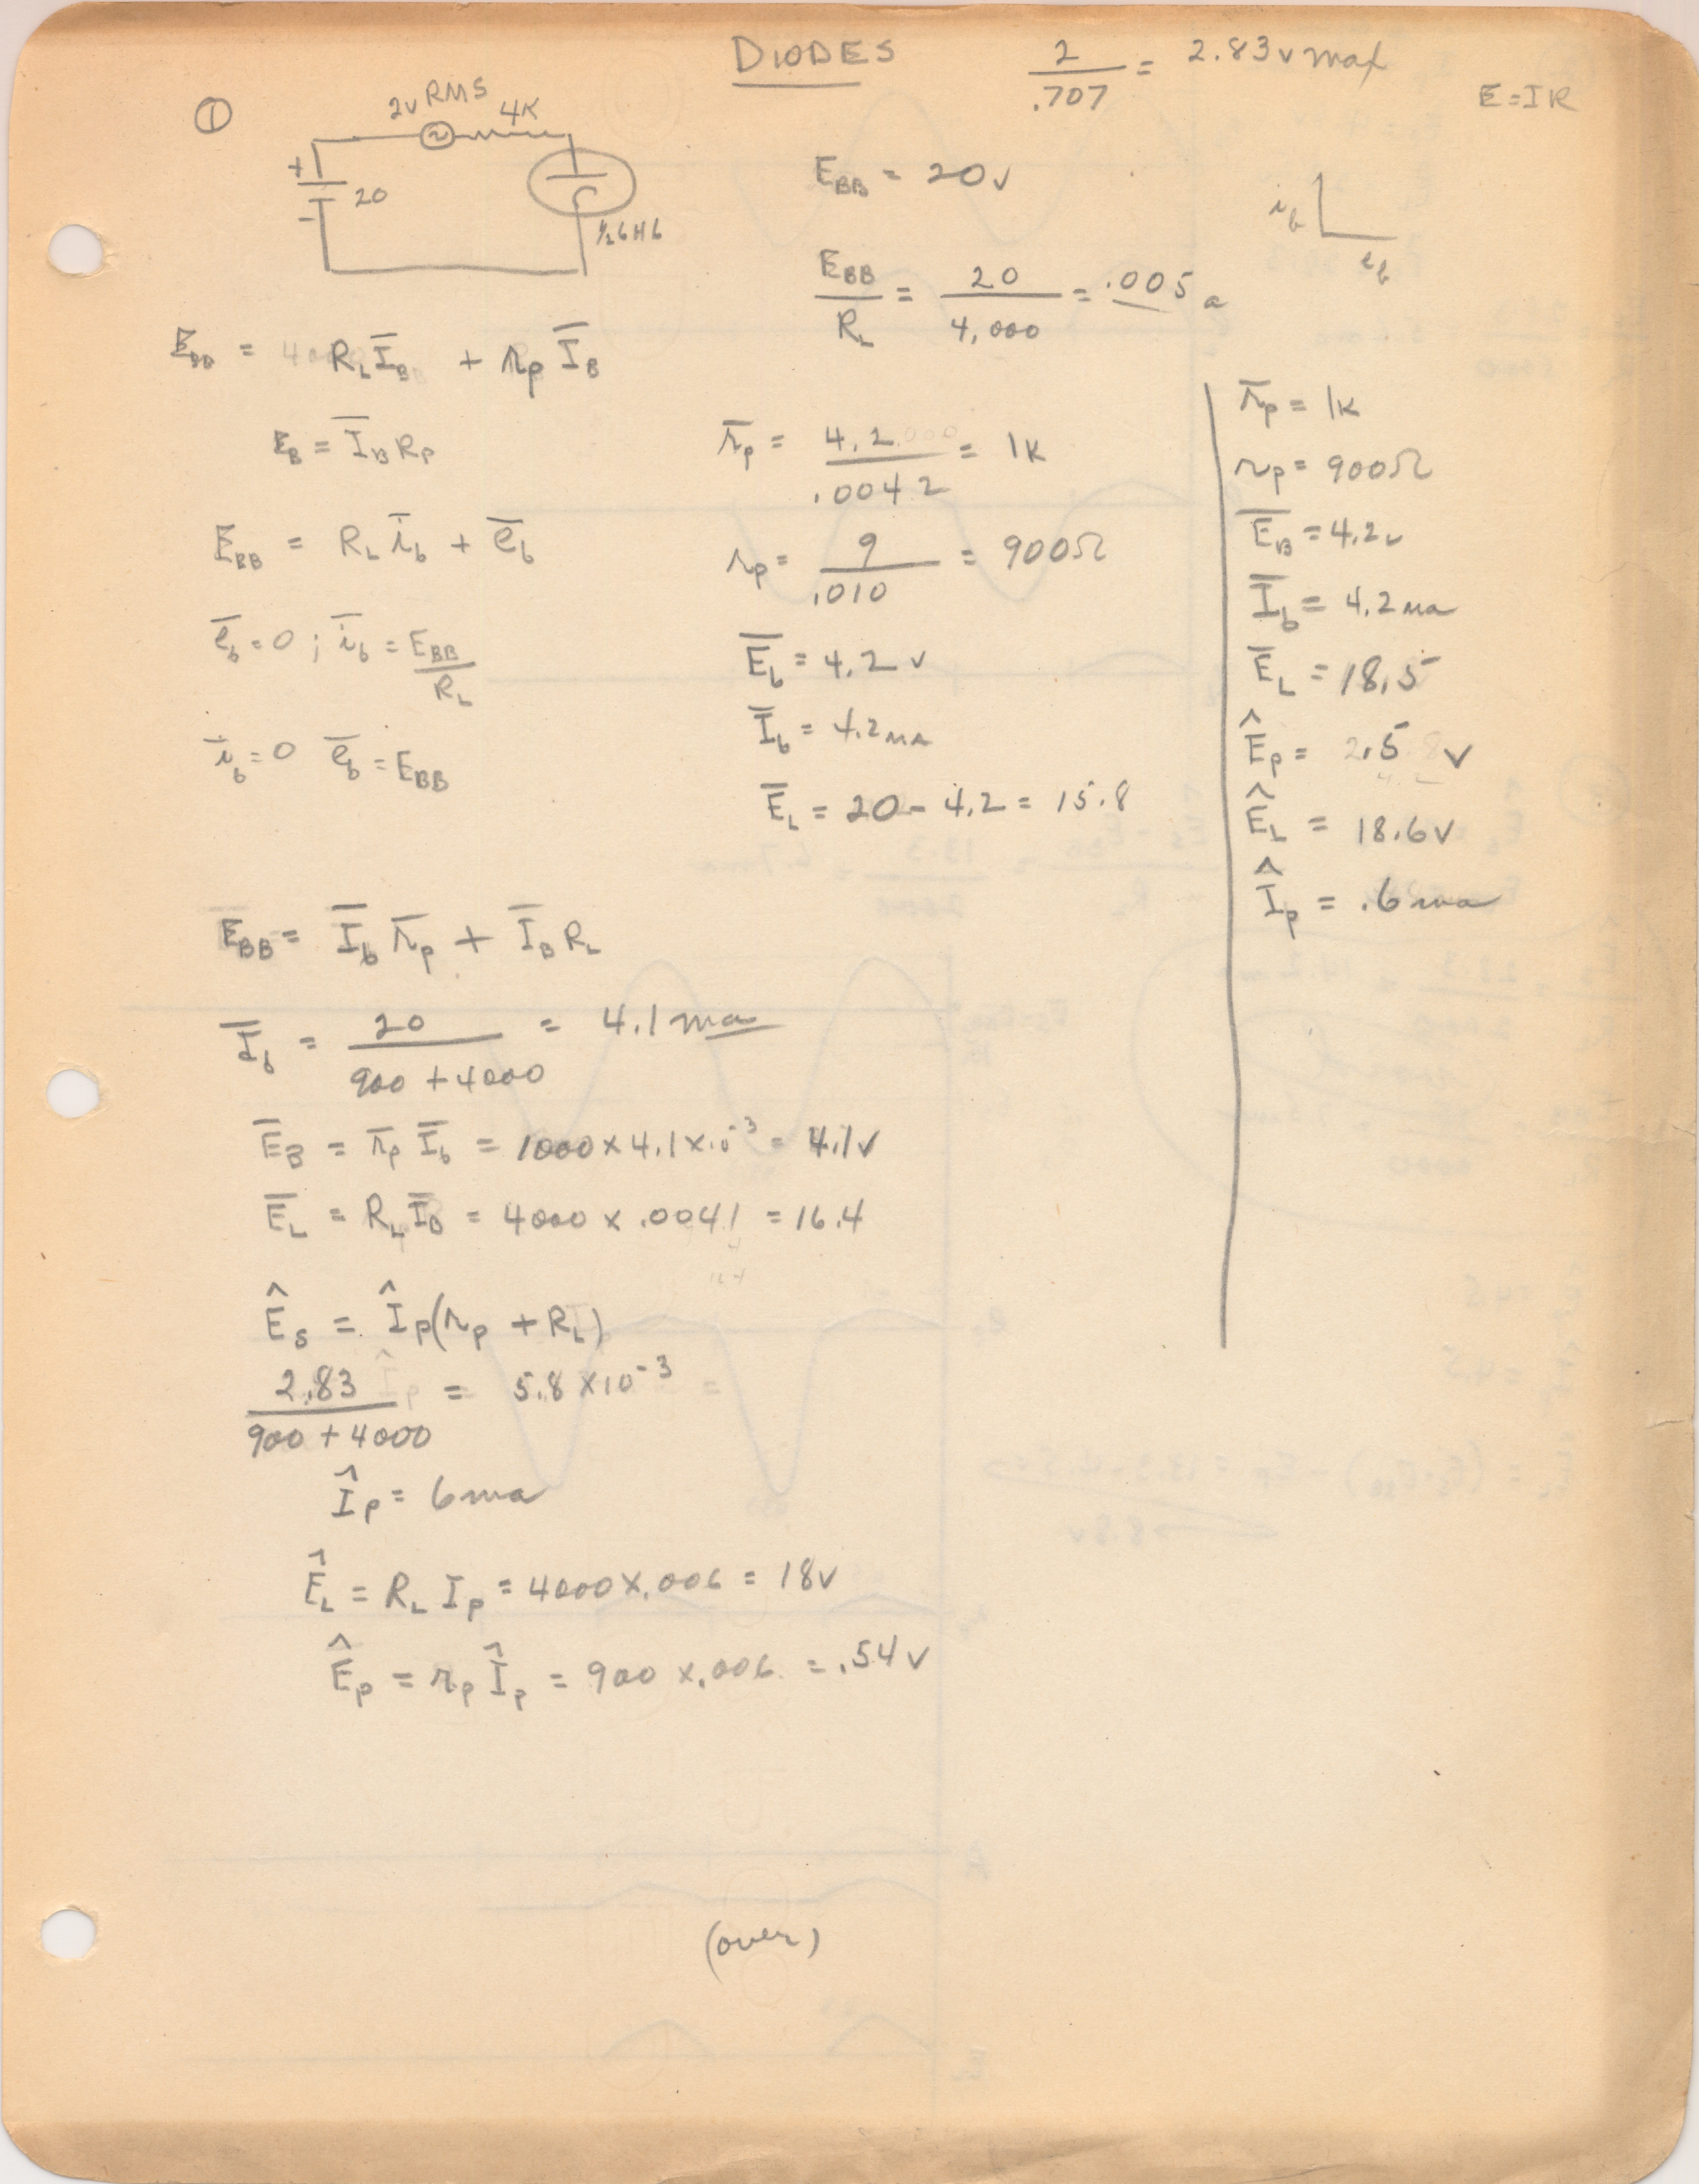 DIODES
2/.707 = 2.83v max
E=IR
①
2v RMS
4K
+
20
-
½6H6
E_BB = 20v
i_b
e_b
E_BB/R_L = 20/4,000 = .005 a
E_BB = R_L Ī_B + r_p Ī_B
E_B = Ī_B R_P
E_BB = R_L ī_b + ē_b
ē_b = 0 ; ī_b = E_BB/R_L
ī_b = 0 ē_b = E_BB
r̄_p = 4.2/.0042 = 1K
r_p = 9/.010 = 900Ω
Ē_b = 4.2 v
Ī_b = 4.2 MA
Ē_L = 20 - 4.2 = 15.8
r̄_p = 1K
r_p = 900Ω
Ē_B = 4.2v
Ī_b = 4.2 ma
Ē_L = 18.5
Ê_P = 2.5 v
Ê_L = 18.6v
Î_P = .6 ma
E_BB = Ī_b r̄_p + Ī_B R_L
Ī_b = 20/(900 + 4000) = 4.1 ma
Ē_B = r̄_p Ī_b = 1000 x 4.1 x 10⁻³ = 4.1v
Ē_L = R_L Ī_B = 4000 x .0041 = 16.4
Ê_S = Î_P (r_p + R_L)
2.83/(900 + 4000) = 5.8 x 10⁻³
Î_P = 6 ma
Ê_L = R_L I_P = 4000 x .006 = 18v
Ê_P = r_p Î_P = 900 x .006 = .54 v
(over)